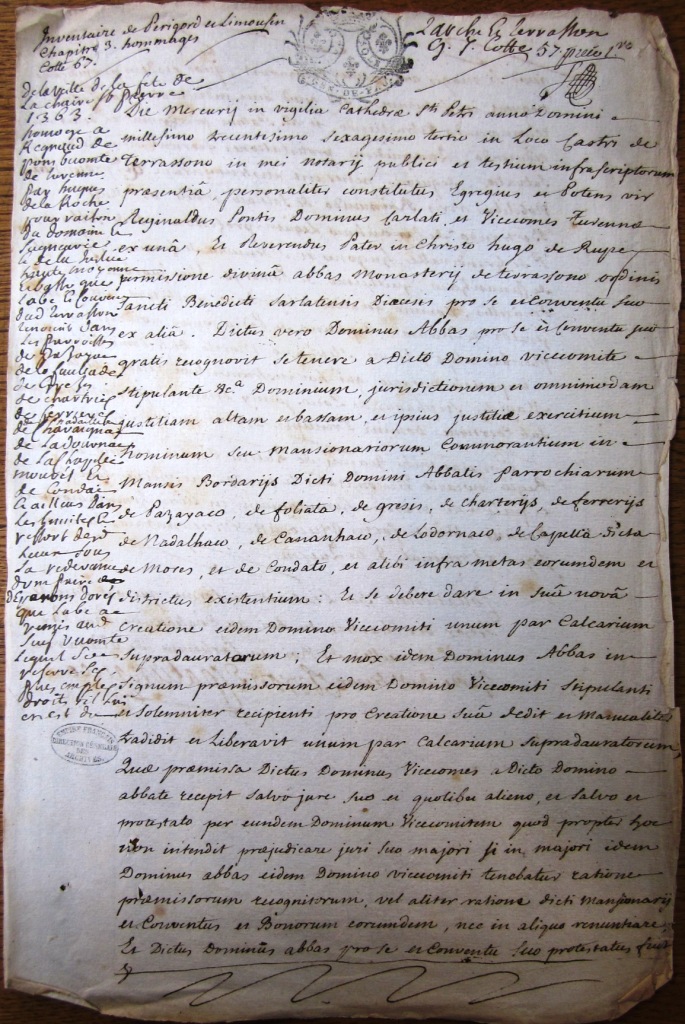 Inventaire de Perigord et Limousin
Chapitre 3. hommages
Cotte 67.
Larche et Terrasson
Cotte 57
de la veille de la fete de
La chaire St Pierre
1363.
homage a
Regnaud de
pons vicomte
de turenne
par hugues
de la Roche
pour raison
du domaine
de la Justice
haute moyenne
et basse que
labé et couvent
dud terrasson
dans
les parroisses
de Pazayac
de la feuillade
de Grezes
de chartriers
de ferrieres
de nadaillac
de Chavagnac
de Ladournac
de La Chapelle
mouret et
de Condat
et ailleurs dans
les limites et
ressort
sous
la redevance
d'une paire
d'Eperons dorés
que labé a
remis aud
Sieur vicomte
lequel
reserve ses
plus amples
droits sil lui
en est du
Die Mercurij in vigilia Cathedræ Sti Petri anno Domini
millesimo trecentisimo sexagesimo tertio in Loco Castri de
Terrassono in mei notarij publici et testium infrascriptorum
præsentiâ, personaliter constitutus Egregius et Potens vir
Reginaldus Pontis Dominus Carlati, et Vicecomes Turennæ
ex unâ, Et Reverendus Pater in Christo hugo de Rupe
permissione divinâ abbas Monasterij de terrassono ordinis
Sancti Benedicti Sarlatensis Diœcesis pro se et Conventu suo
ex aliâ. Dictus vero Dominus Abbas pro se et Conventu suo
gratis recognovit se tenere a Dicto Domino vicecomite
stipulante &c.a Dominium, jurisdictionem et omnimodam
justitiam altam et bassam, et ipsius justitiæ exercitium
hominum seu mansionariorum Commorantium in
Mansis Bordarijs Dicti Domini Abbatis parrochiarum
de Pazayaco, de foliata, de gresis, de charterijs, de ferrerijs
de Nadalhaco, de Cavanhaco, de Lodornaco, de Capella dicta
de Mores, et de Condato, et alibi infra metas eorumdem et
districtus existentium: Et se debere dare in suâ novâ
Creatione eidem Domino Vicecomiti unum par Calcarium
supradauratorum; Et mox idem Dominus Abbas in
signum præmissorum eidem Domino Vicecomiti stipulanti
et solemniter recipienti pro Creatione suâ dedit et manualiter
tradidit et Liberavit unum par Calcarium supradauratorum,
Quæ præmissa Dictus Dominus Vicecomes a Dicto Domino
abbate recepit salvo jure suo et quolibet alieno, et salvo et
protestato per eundem Dominum Vicecomitem quod propter hoc
non intendit præjudicare juri suo majori si in majori idem
Dominus abbas eidem Domino vicecomiti tenebatur ratione
præmissorum recognitorum, vel aliter ratione dicti mansionarij
et Conventus et Bonorum eorumdem, nec in aliquo renuntiare
Et Dictus Dominus abbas pro se et Conventu suo protestatus fuit
EMPIRE FRANÇAIS
DIRECTION GENERALE
DES
ARCHIVES